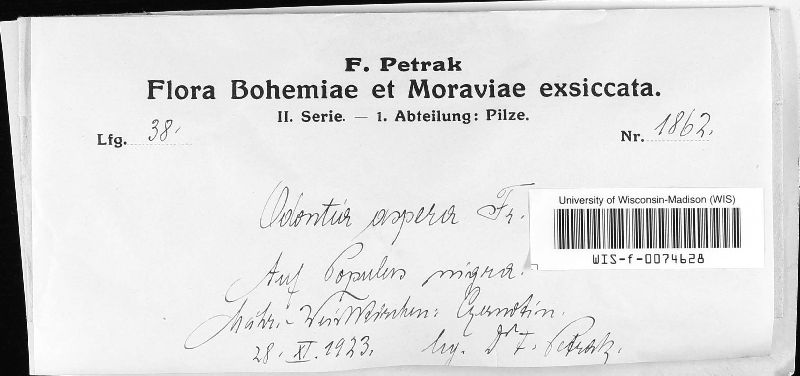 F. Petrak
Flora Bohemiae et Moraviae exsiccata.
II. Serie. — 1. Abteilung: Pilze.
Lfg. 38.
Nr. 1862.
Odontia aspera Fr.
University of Wisconsin-Madison (WIS)
WIS-f-0074628
Auf Populus nigra.
Mähr.-Weisskirchen: Czernotin.
28. XI. 1923. leg. Dr F. Petrak.